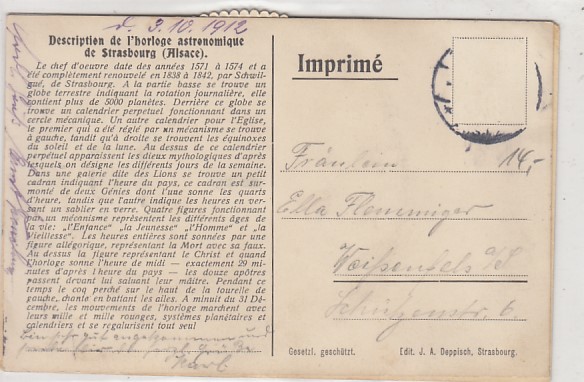 d. 3.10.1912
Description de l'horloge astronomique
de Strasbourg (Alsace).
Le chef d'oeuvre date des années 1571 à 1574 et a
été complètement renouvelé en 1838 à 1842, par Schwil-
gué, de Strasbourg. A la partie basse se trouve un
globe terrestre indiquant la rotation journalière, elle
contient plus de 5000 planètes. Derrière ce globe se
trouve un calendrier perpétuel fonctionnant dans un
cercle mécanique. Un autre calendrier pour l'Eglise,
le premier qui a été réglé par un mécanisme se trouve
à gauche, tandit qu'à droite se trouvent les équinoxes
du soleil et de la lune. Au dessus de ce calendrier
perpétuel apparaissent les dieux mythologiques d'après
lesquels on désigne les différents jours de la semaine.
Dans une galerie dite des Lions se trouve un petit
cadran indiquant l'heure du pays, ce cadran est sur-
monté de deux Génies dont l'une sonne les quarts
d'heure, tandis que l'autre indique les heures en ver-
sant un sablier en verre. Quatre figures fonctionnant
par un mécanisme représentent les différents âges de la
vie: „l'Enfance" „la Jeunesse" „l'Homme" et „la
Vieillesse". Les heures entières sont sonnées par une
figure allégorique, représentant la Mort avec sa faux.
Au dessus la figure représentant le Christ et quand
l'horloge sonne l'heure de midi — exactement 29 mi-
nutes d'après l'heure du pays — les douze apôtres
passent devant lui saluant leur maître. Pendant ce
temps le coq perché sur le haut de la tourelle de
gauche, chante en battant les ailes. A minuit du 31 Dé-
cembre, les mouvements de l'horloge marchent avec
leurs mille et mille rouages, systèmes planétaires et
calendriers et se regularisent tout seul
Bin sehr gut angekommen und
Karl
Imprimé
14,-
Fräulein
Ella
Weißenfels a/S
Schützenstr. 6.
Gesetzl. geschützt. Edit. J. A. Deppisch, Strasbourg.